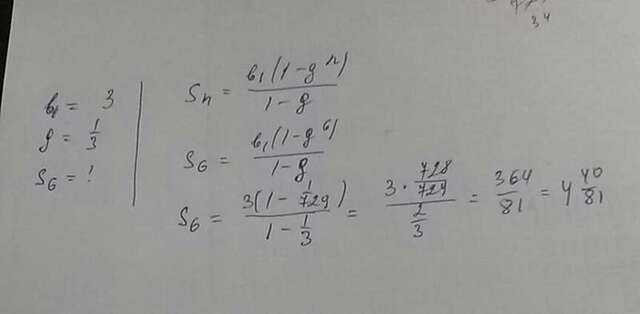 34
b₁ = 3
q = 1/3
S₆ = !
Sₙ = b₁(1-qⁿ)/(1-q)
S₆ = b₁(1-q⁶)/(1-q)
S₆ = 3(1-1/729)/(1-1/3) = (3·728/729)/(2/3) = 364/81 = 4 40/81